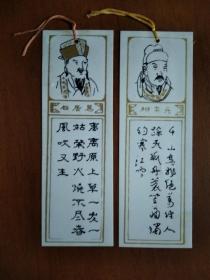 白居易
离离原上草一岁一
枯荣野火烧不尽春
风吹又生
柳宗元
千山鸟飞绝万径人
踪灭孤舟蓑笠翁独
钓寒江雪